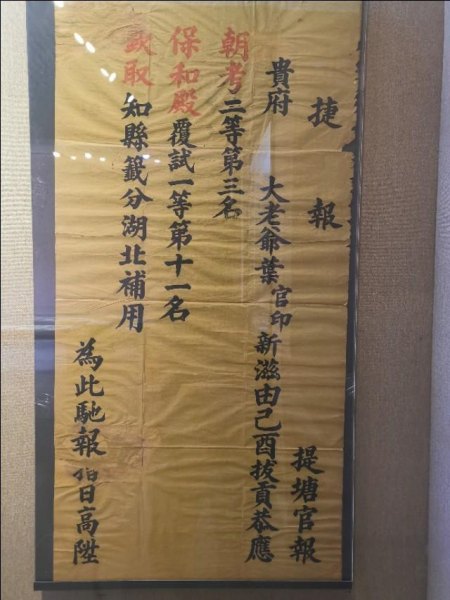 捷報 提塘官報
貴府 大老爺葉官印新滋由己酉拔貢恭應
朝考二等第三名
保和殿覆試一等第十一名
欽取知縣籤分湖北補用
為此馳報 指日高陞